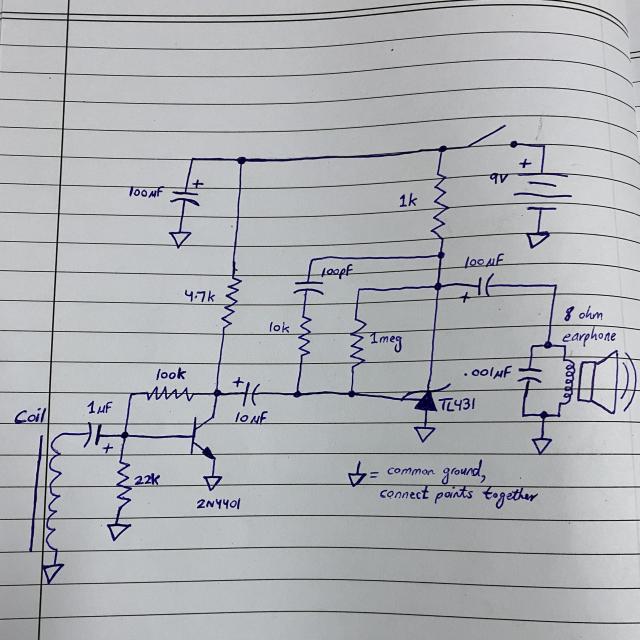 +
100µF
9V
+
1k
100pF
100µF
+
4.7k
8 ohm
earphone
10k
1meg
.001µF
100k
+
10µF
TL431
Coil
1µF
+
22k
2N4401
= common ground,
connect points together